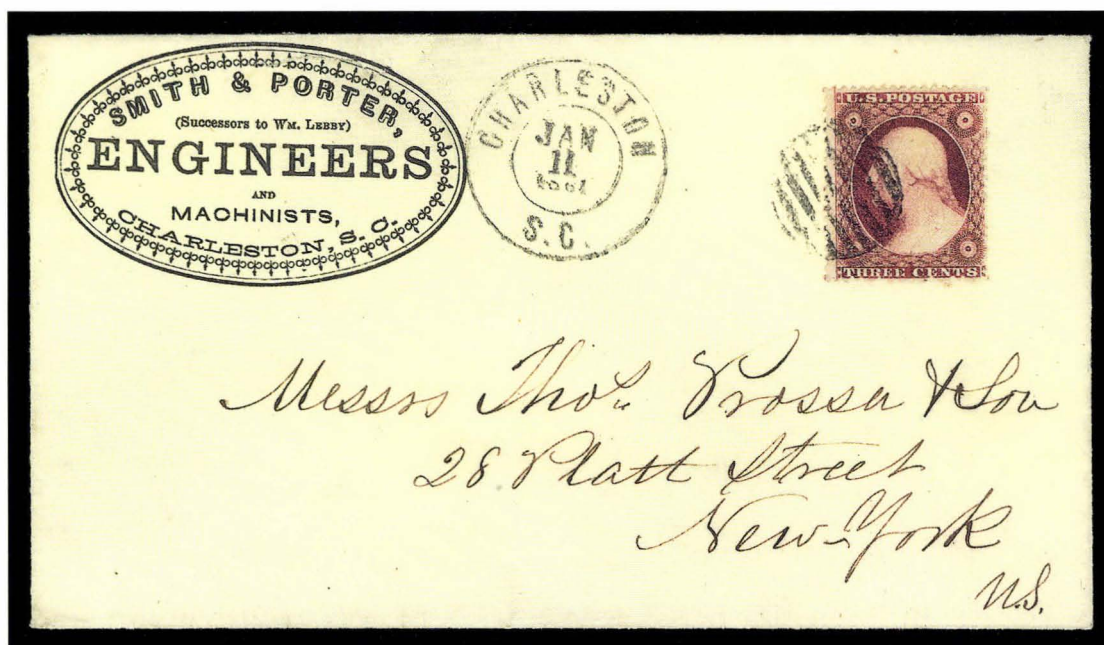 SMITH & PORTER,
(Successors to WM. LEBBY)
ENGINEERS
AND
MACHINISTS,
CHARLESTON, S.C.
CHARLESTON
JAN
11
1861
S.C.
U.S. POSTAGE
THREE CENTS
Messrs Thos. Prosser & Son
28 Platt Street
New-York
U.S.